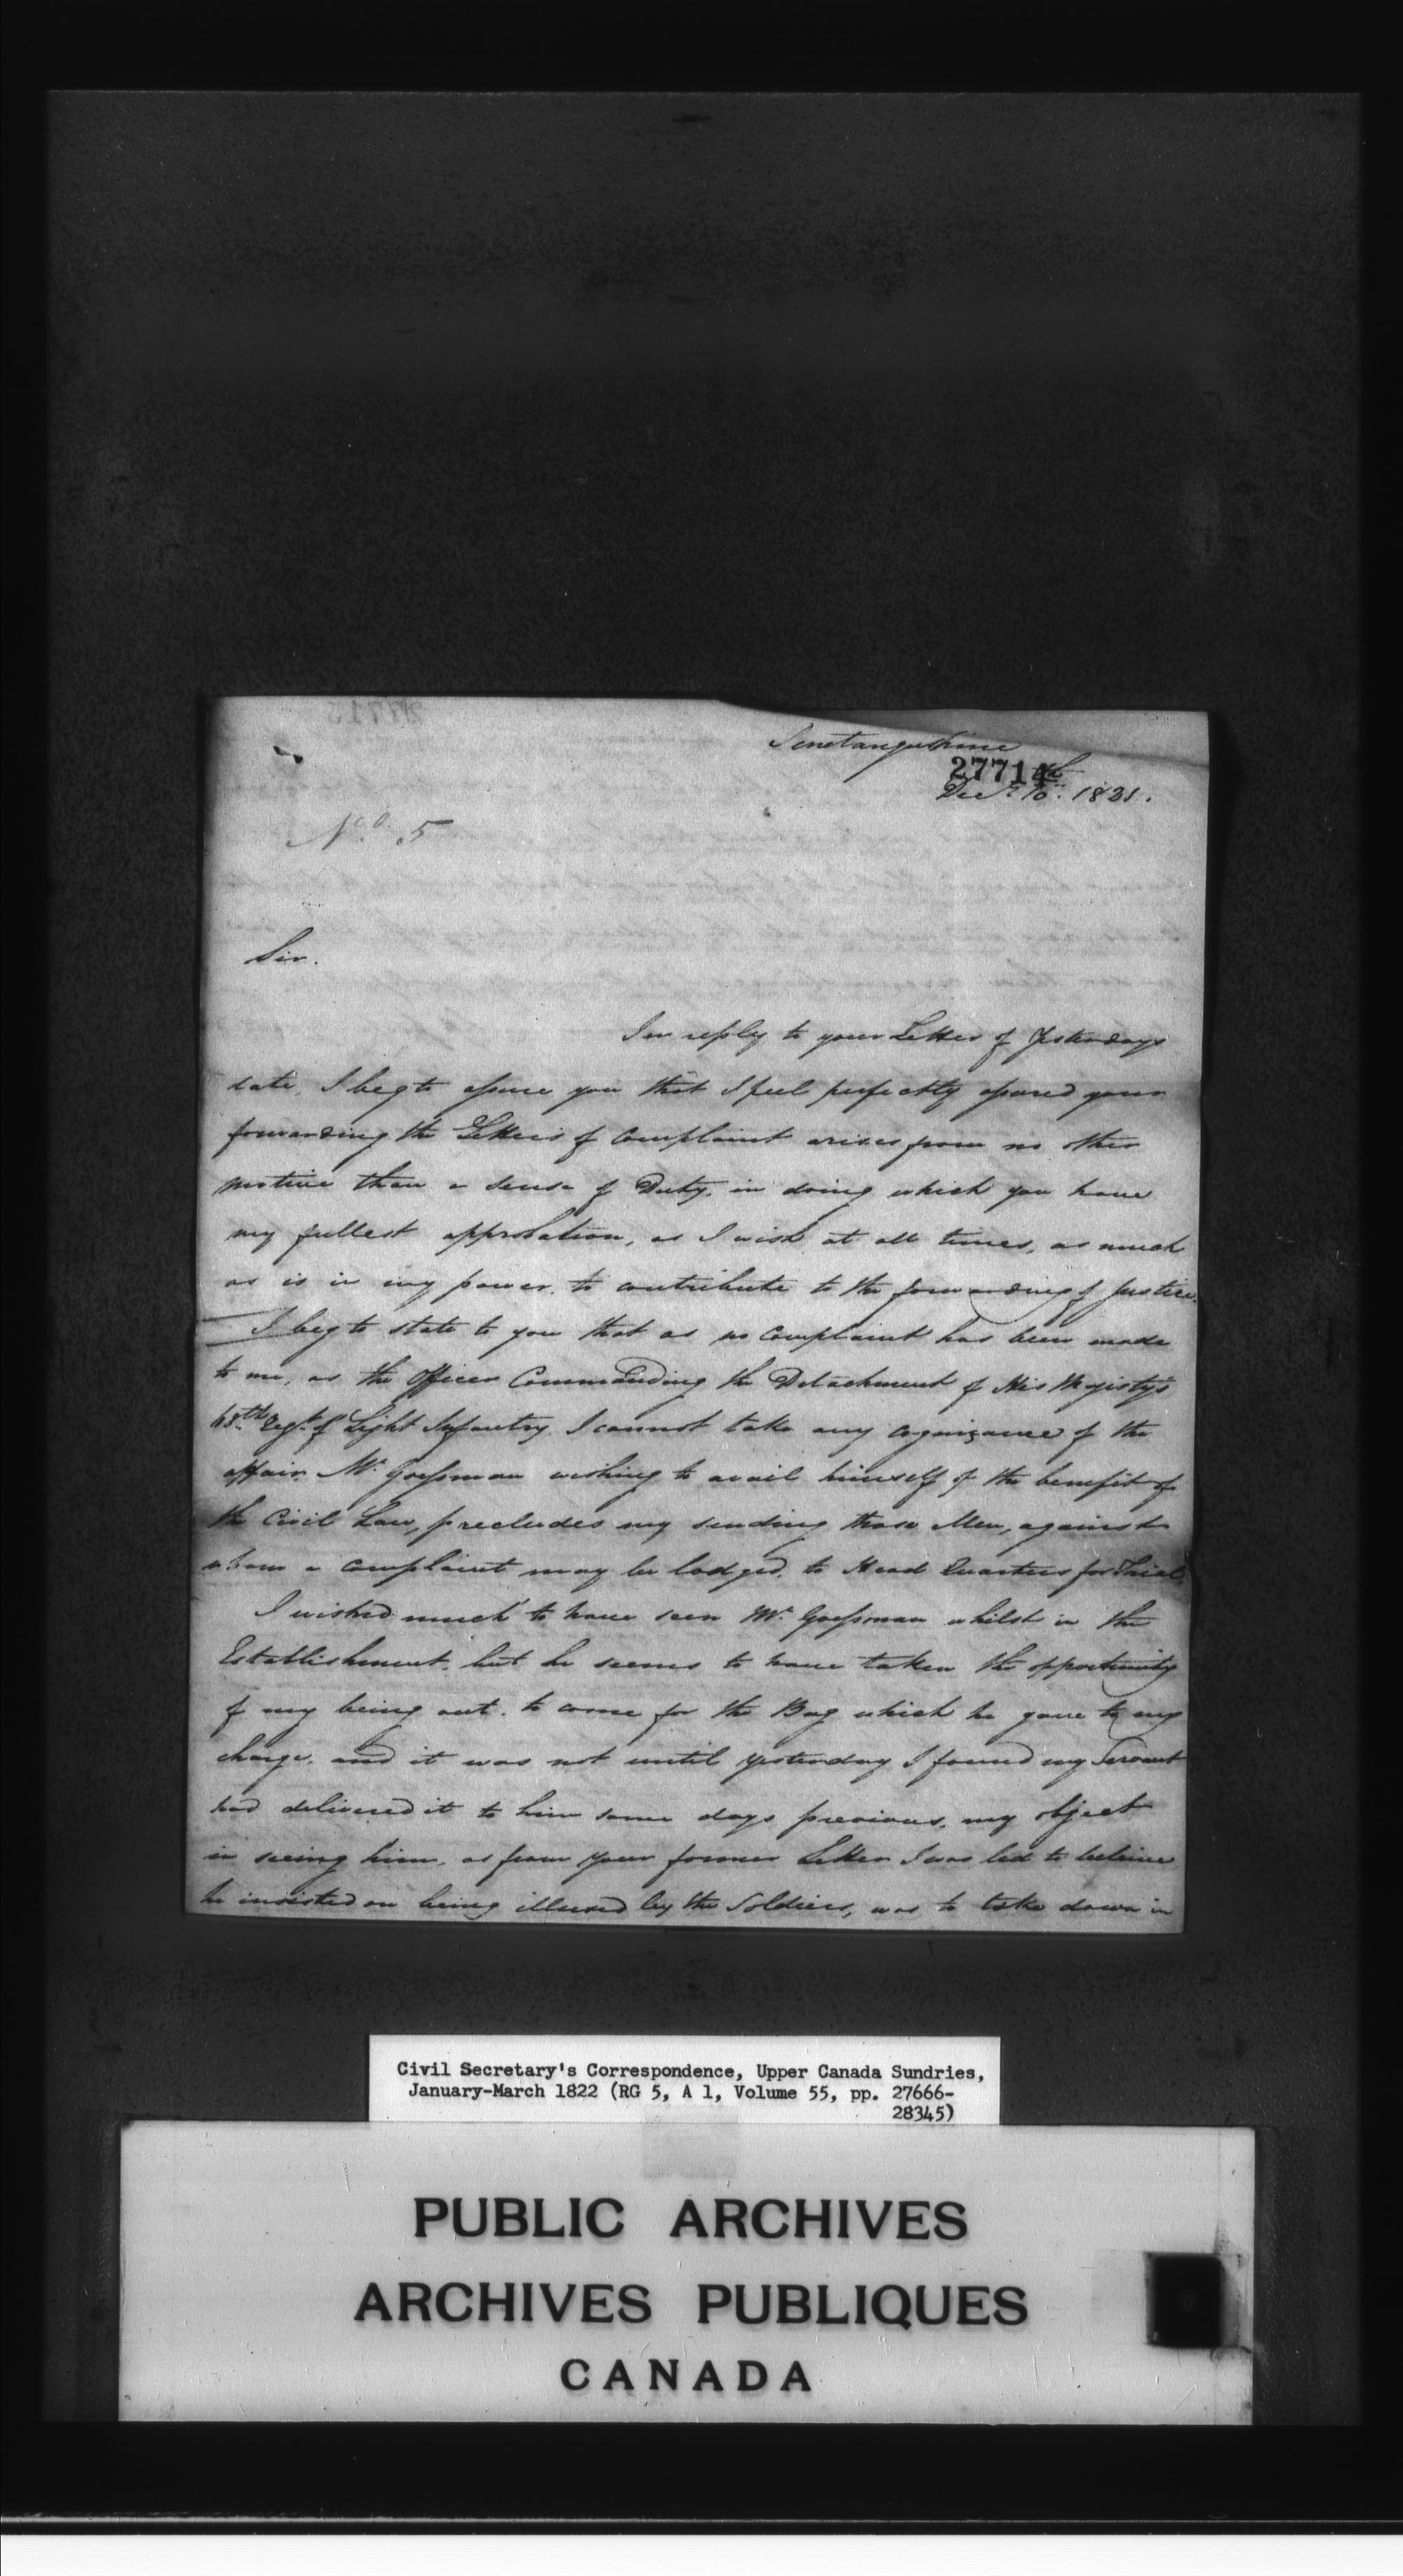 Penetanguishine
27714
Decr. 10th. 1821.
No. 5
Sir.
In reply to your Letter of Yesterdays
date, I beg to assure you that I feel perfectly assured your
forwarding the Letters of Complaint arises from no other
motive than a sense of Duty, in doing which you have
my fullest approbation, as I wish at all times, as much
as is in my power, to contribute to the forwarding of Justice.
I beg to state to you that as no Complaint has been made
to me, as the Officer Commanding the Detachment of His Majesty's
68th Regt. of Light Infantry, I cannot take any cognizance of the
affair. Mr. Goessman wishing to avail himself of the benefit of
the Civil Law, precludes my sending those Men, against
whom a complaint may be lodged, to Head Quarters for Trial.
I wished much to have seen Mr. Goessman whilst in the
Establishment, but he seems to have taken the opportunity
of my being out, to come for the Bag which he gave to my
charge, and it was not until yesterday I found my Servant
had delivered it to him some days previous, my object
in seeing him, as from your former Letter I was led to beleive
he insisted on being illused by the Soldiers, was to take down in
Civil Secretary's Correspondence, Upper Canada Sundries,
January-March 1822 (RG 5, A 1, Volume 55, pp. 27666-
28345)
PUBLIC ARCHIVES
ARCHIVES PUBLIQUES
CANADA